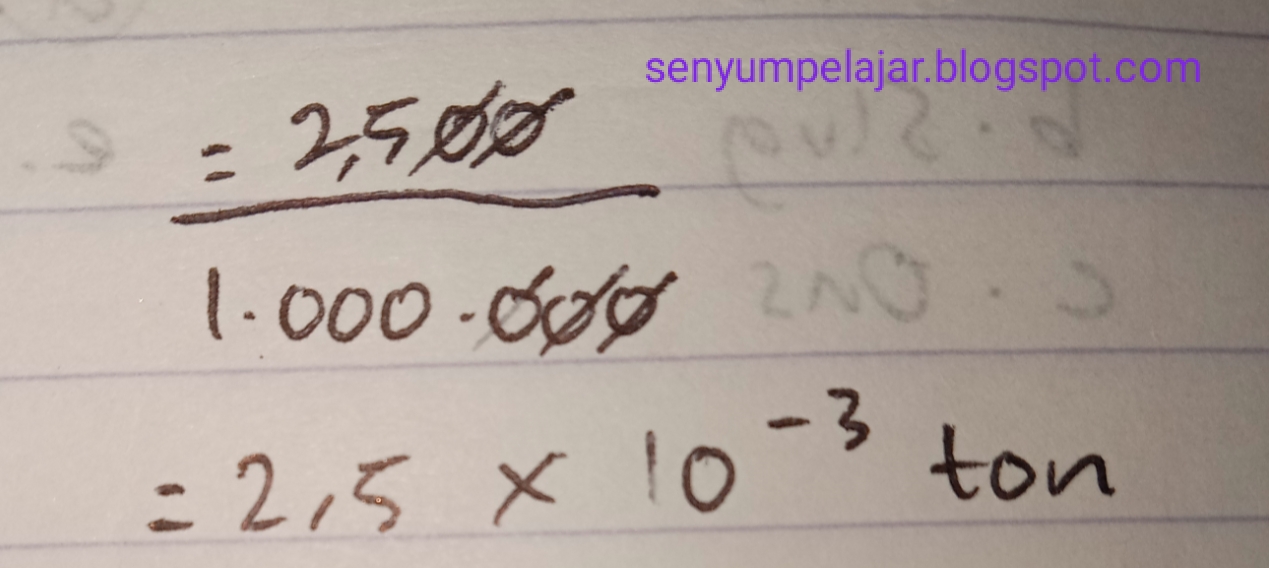 senyumpelajar.blogspot.com
= 2,500
1.000.000
= 2,5 × 10⁻³ ton